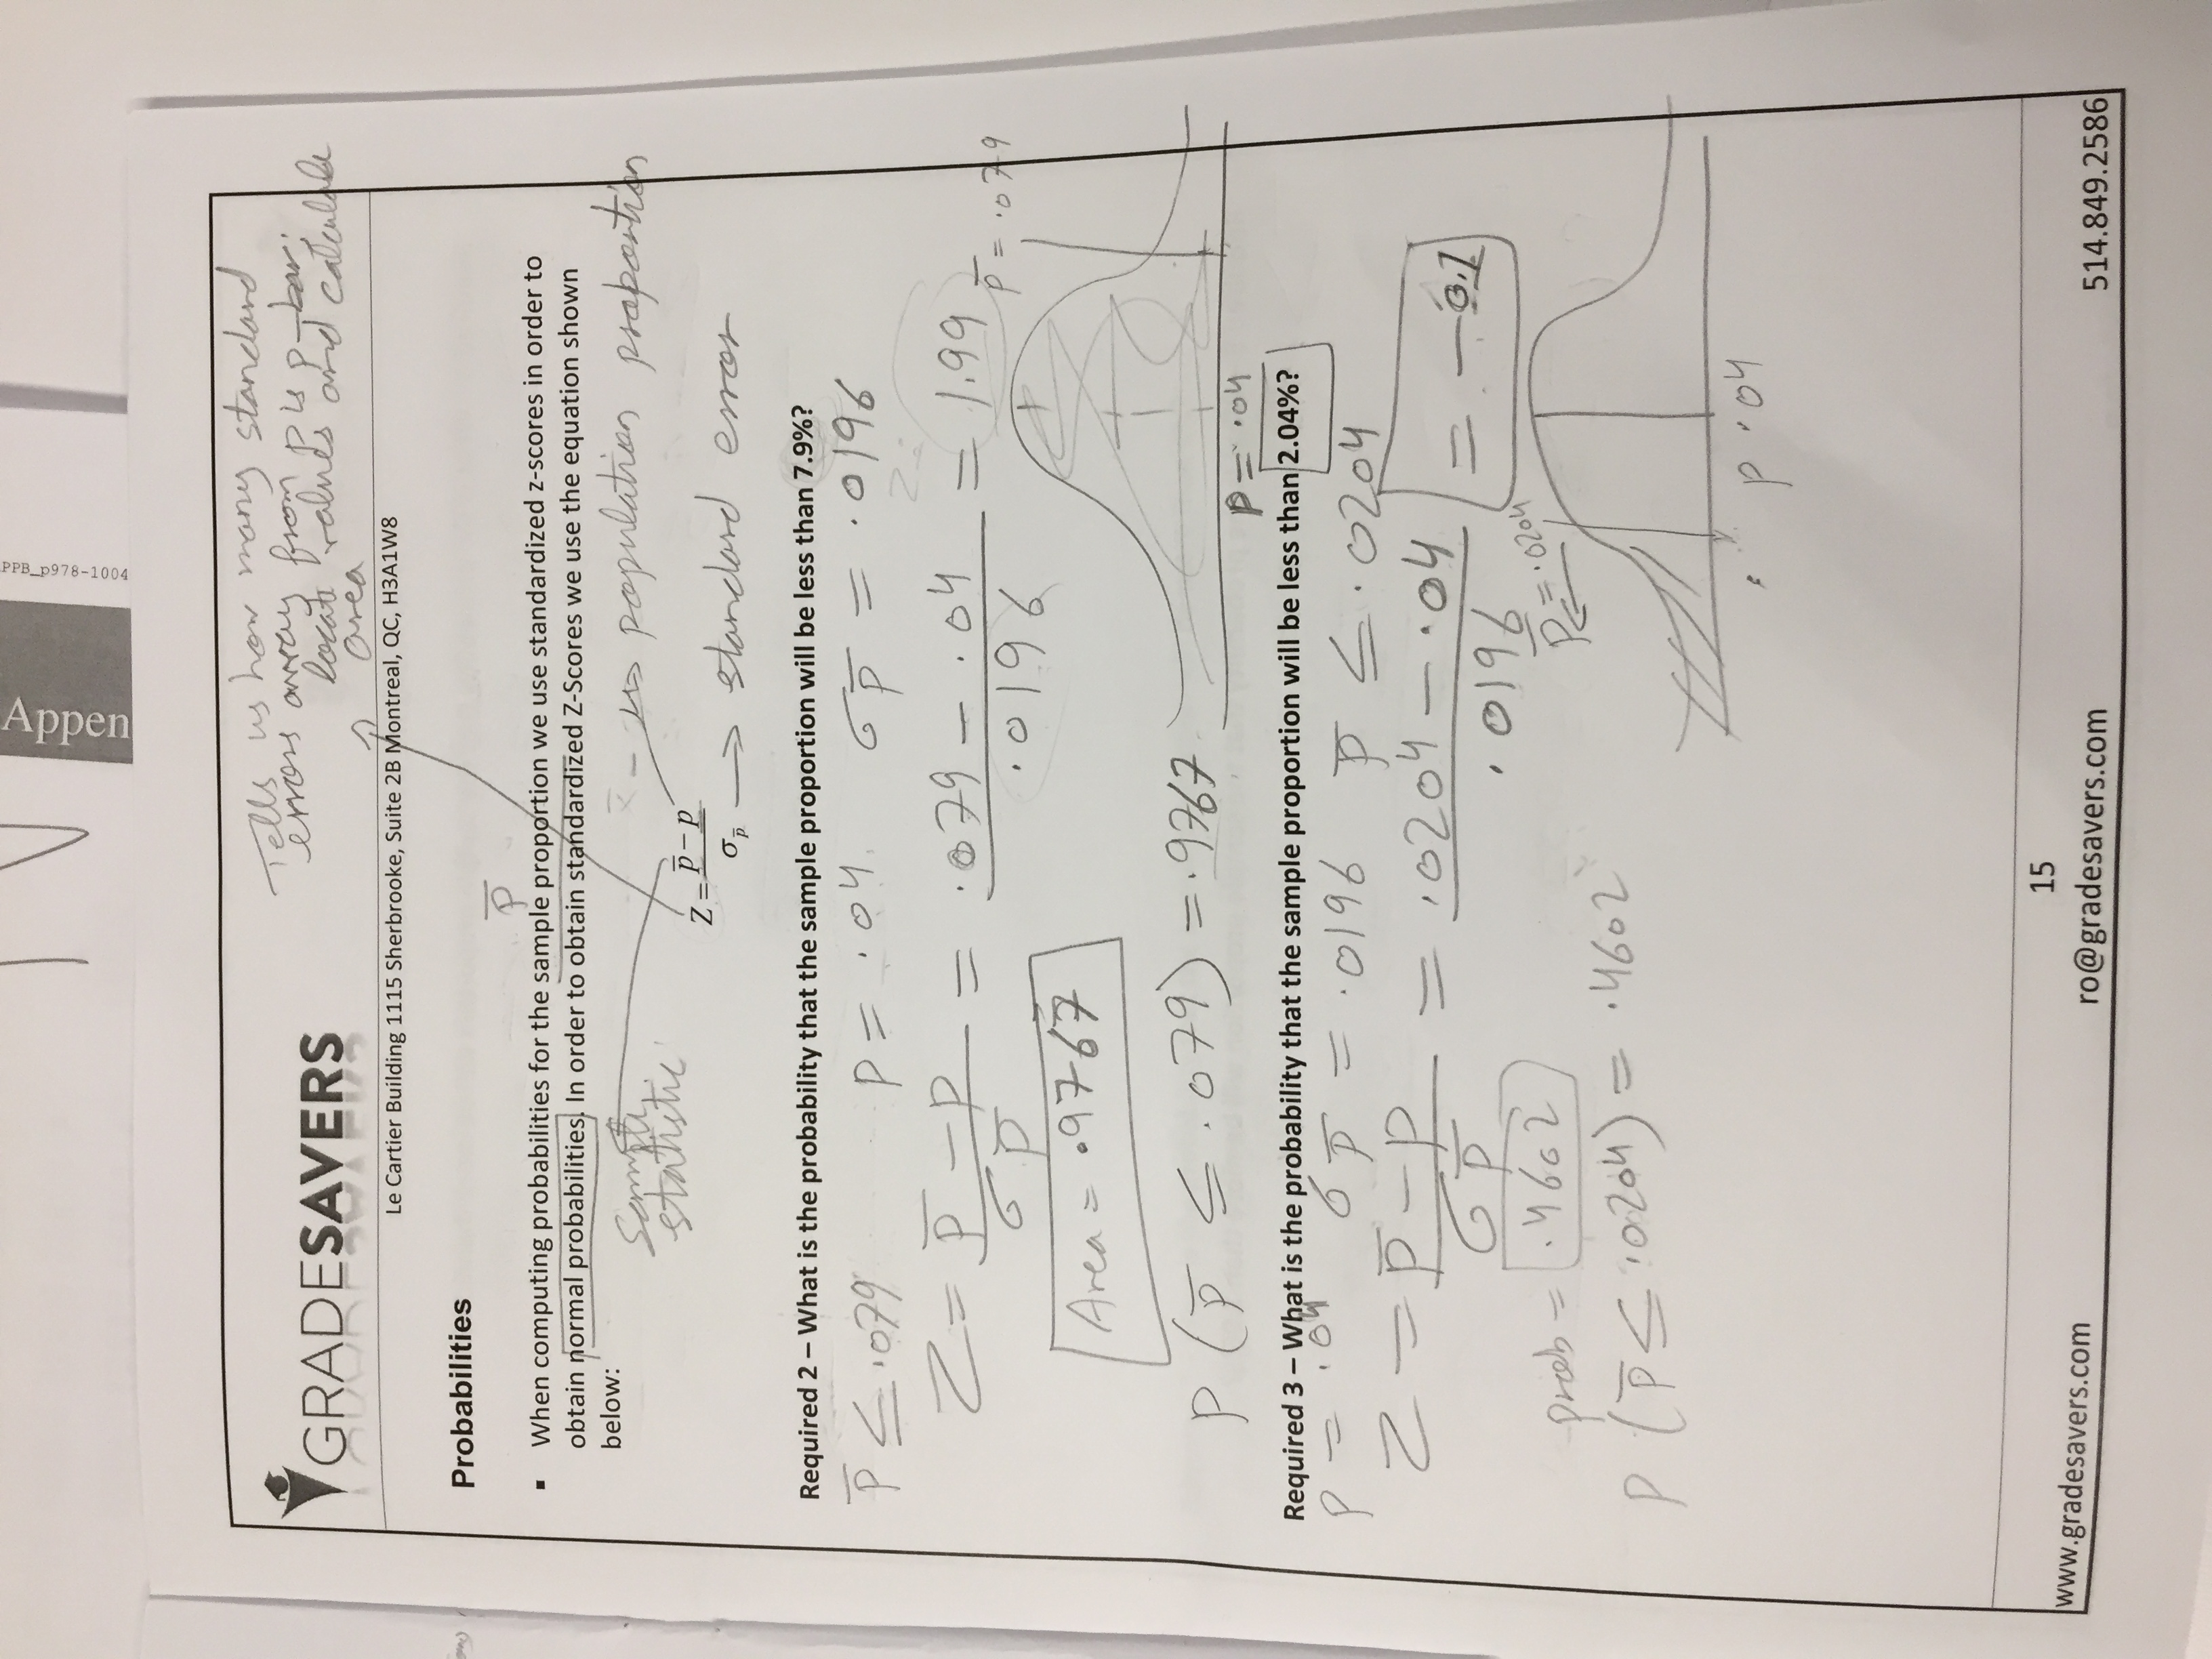 PPB_p978-1004
Appen
Tells us how many standard
errors away from P is P-bar;
locate values and calculate
area
GRADESAVERS
Le Cartier Building 1115 Sherbrooke, Suite 2B Montreal, QC, H3A1W8
Probabilities
p̅
▪ When computing probabilities for the sample proportion we use standardized z-scores in order to
obtain normal probabilities. In order to obtain standardized Z-Scores we use the equation shown
below:
Sample
statistic
x̅ - μ → population proportion
Z = (p̅ − p) / σp̅ → standard error
Required 2 – What is the probability that the sample proportion will be less than 7.9%?
p̅ ≤ .079 P = .04 σp̅ = .0196
Z = (p̅ − p) / σp̅ = (.079 − .04) / .0196 = 1.99
p̅ = .079
Area = .9767
P (p̅ ≤ .079) = .9767
P = .04
Required 3 – What is the probability that the sample proportion will be less than 2.04%?
P = .04 σp̅ = .0196 p̅ ≤ .0204
Z = (p̅ − p) / σp̅ = (.0204 − .04) / .0196 = −0.1
prob = .4602
p̅ = .0204
P (p̅ ≤ .0204) = .4602
P .04
15
www.gradesavers.com ro@gradesavers.com 514.849.2586